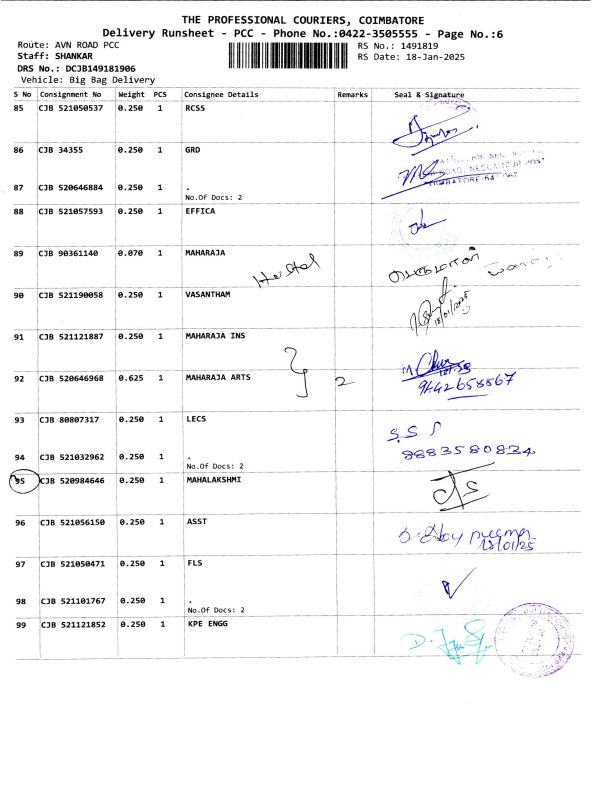 THE PROFESSIONAL COURIERS, COIMBATORE
Delivery Runsheet - PCC - Phone No.:0422-3505555 - Page No.:6
Route: AVN ROAD PCC
RS No.: 1491819
Staff: SHANKAR
RS Date: 18-Jan-2025
DRS No.: DCJB149181906
Vehicle: Big Bag Delivery
S No Consignment No Weight PCS Consignee Details Remarks Seal & Signature
85 CJB 521050537 0.250 1 RCSS
86 CJB 34355 0.250 1 GRD
87 CJB 520646884 0.250 1 .
No.Of Docs: 2
88 CJB 521057593 0.250 1 EFFICA
89 CJB 90361140 0.070 1 MAHARAJA
Hostel
90 CJB 521190058 0.250 1 VASANTHAM
18/01/2025
91 CJB 521121887 0.250 1 MAHARAJA INS
92 CJB 520646968 0.625 1 MAHARAJA ARTS 2
9442658867
93 CJB 80807317 0.250 1 LECS
S.S
94 CJB 521032962 0.250 1 .
9883580834
No.Of Docs: 2
95 CJB 520984646 0.250 1 MAHALAKSHMI
96 CJB 521056150 0.250 1 ASST
18/01/25
97 CJB 521050471 0.250 1 FLS
98 CJB 521101767 0.250 1 .
No.Of Docs: 2
99 CJB 521121852 0.250 1 KPE ENGG